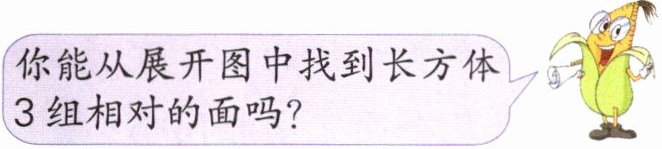 你能从展开图中找到长方体
3组相对的面吗?